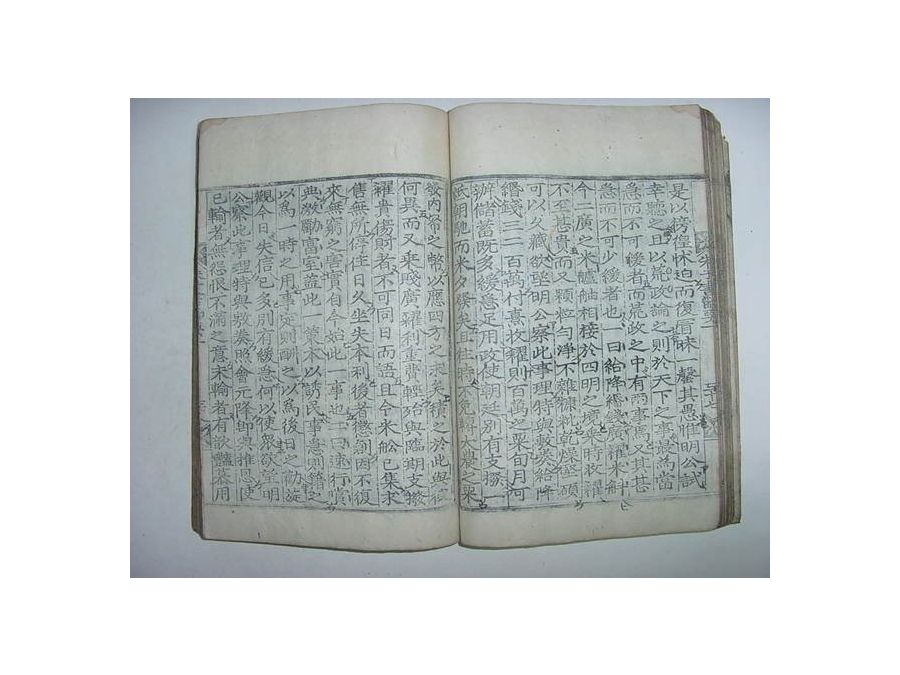 是以彷徨怵迫而復冒昧一罄其愚惟明公試
幸聽之且以荒政論之則於天下之事最爲當
急而不可後者而荒政之中有兩事焉又其甚
急而不可少緩者也一曰給降緡錢廣糴米斛
今二廣之米艫舳相接於四明之境乘時收糴
不至甚貴而又顆粒匀淨不雜糠秕乾燥堅碩
可以久藏欲望明公察此事理特與敷奏給降
緡錢三二百萬付熹收糴則百萬之粟旬月可
辦儲蓄既多緩急足用政使朝廷別有支撥一
紙朝馳而米夕發矣且往時免轉大農之粟
發內帑之幣以應四方之求矣積之於此與彼
何異而又米賤廣糴利重費輕殆與臨期支撥
糴貴傷財者不可同日而語且今米舩已集求
售無所停住日久坐失本利後者懲創因不復
來無窮之害實自今始此一事也二曰速行賞
典激勸富室盖此一策本以誘民事急則籍之
以爲一時之用事定則酬之以爲後日之勸旋
觀今日失信已多別有緩急何以使衆欲望明
公察此事理特與敷奏照會元降即與推恩使
已輸者無怨恨不滿之意未輸者有歆豔慕用